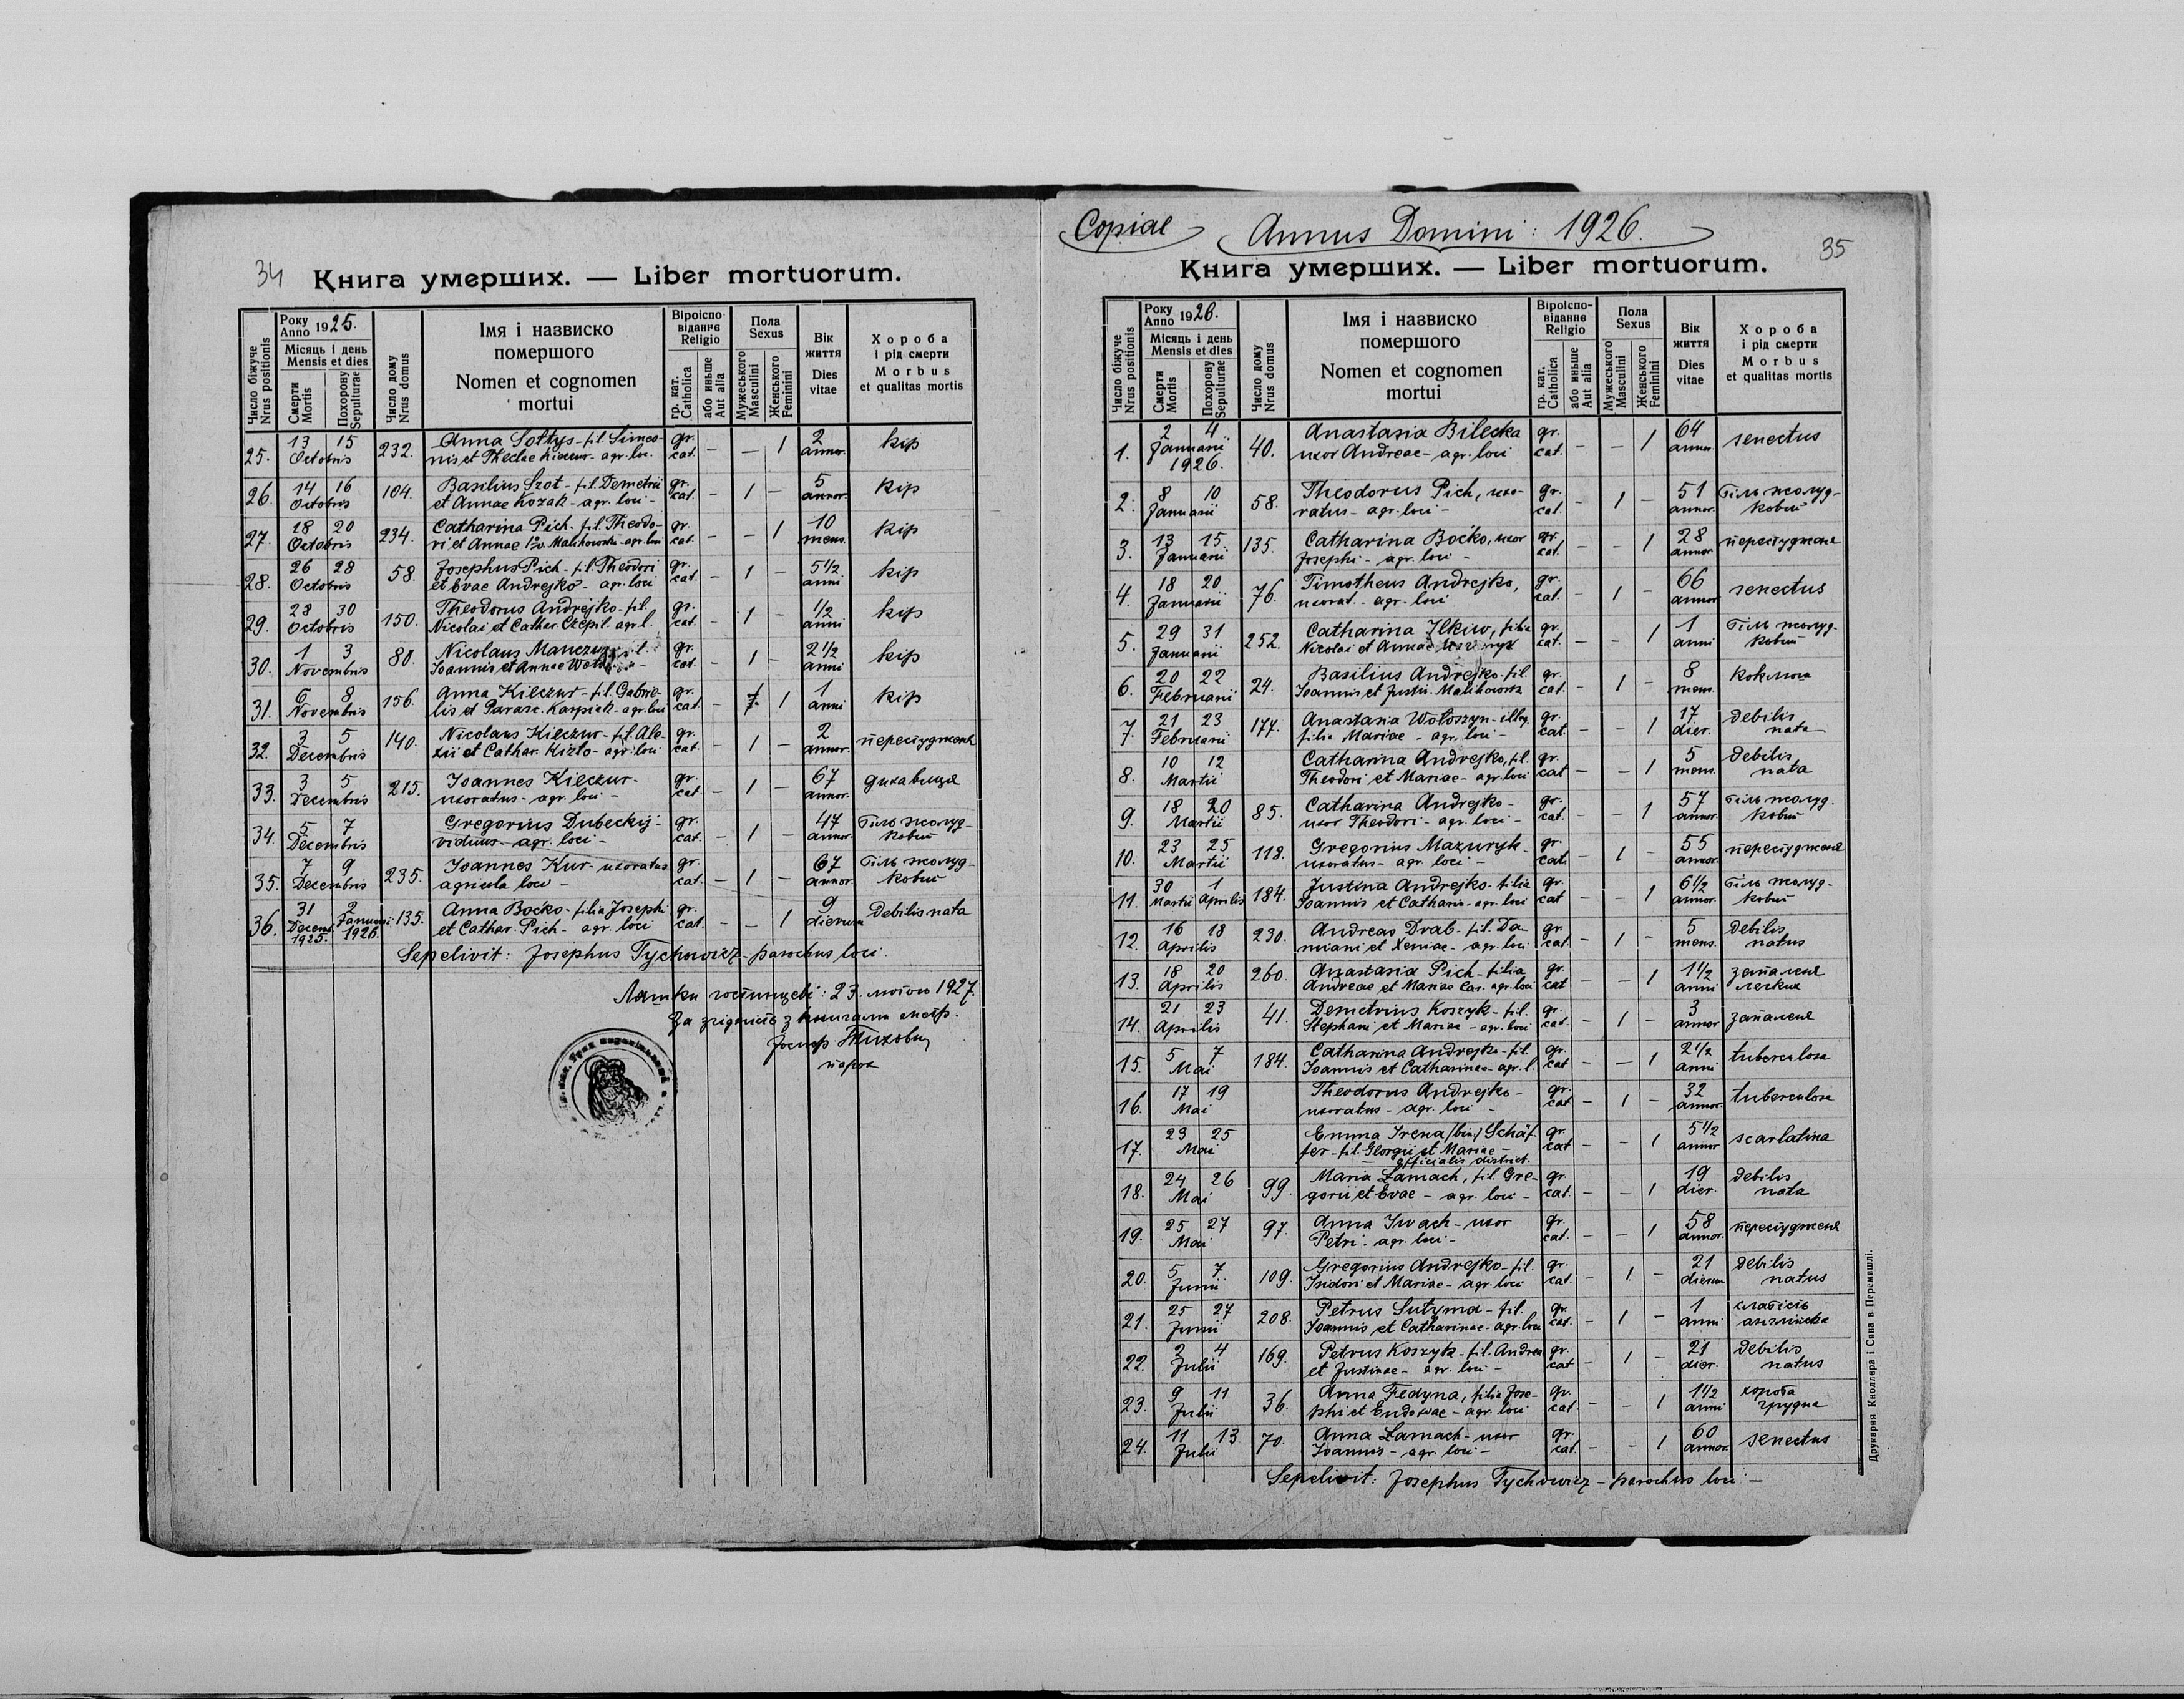 34
Книга умерших. — Liber mortuorum.
Число біжуче
Nrus positionis
Року
Anno 1925.
Місяць і день
Mensis et dies
Смерти
Mortis
Похорону
Sepulturae
Число дому
Nrus domus
Імя і назвиско
помершого
Nomen et cognomen
mortui
Віроіспо-
віданнє
Religio
гр. кат.
Catholica
або иньше
Aut alia
Пола
Sexus
Мужеського
Masculini
Женського
Feminini
Вік
життя
Dies
vitae
Хороба
і рід смерти
Morbus
et qualitas mortis
25. 13 15 Octobris 232. Anna Sołtys - fil. Simeo-
nis et Theclae Kieczur - agr. loc. gr. cat. - - 1 2 annor. кір
26. 14 16 Octobris 104. Basilius Szot - fil. Demetrii
et Annae Kozak - agr. loci - gr. cat. - 1 - 5 annor. кір
27. 18 20 Octobris 234. Catharina Pich - fil. Theodo-
ri et Annae Malikowska - agr. loci gr. cat. - - 1 10 mens. кір
28. 26 28 Octobris 58. Josephus Pich - fil. Theodori
et Evae Andrejko - agr. loci gr. cat. - 1 - 5 1/2 anni кір
29. 28 30 Octobris 150. Theodorus Andrejko - fil.
Nicolai et Cathar. Czepil - agr. l. gr. cat. - 1 - 1/2 anni кір
30. 1 3 Novembris 80. Nicolaus Manczur - fil.
Joannis et Annae gr. cat. - 1 - 2 1/2 anni кір
31. 6 8 Novembris 156. Anna Kieczur - fil. Gabrie-
lis et Parasc. Karpiak - agr. loci gr. cat. - 1 1 anni кір
32. 3 5 Decembris 140. Nicolaus Kieczur - fil. Ale-
xii et Cathar. Kizło - agr. loci gr. cat. - 1 - 2 annor. перестудженя
33. 3 5 Decembris 215. Joannes Kieczur -
uxoratus - agr. loci - gr. cat. - 1 - 67 annor. дихавиця
34. 5 7 Decembris Gregorius Dubeckyj -
viduus - agr. loci - gr. cat. - 1 - 47 annor. біль жолуд-
ковий
35. 7 9 Decembris 235. Joannes Kur - uxoratus
agricola loci - gr. cat. - 1 - 67 annor. біль жолуд-
ковий
36. 31 Decem. 1925. 2 Januarii 1926. 135. Anna Boćko - filia Josephi
et Cathar. Pich - agr. loci gr. cat. - - 1 9 dierum debilis nata
Sepelivit: Josephus Tychowicz - parochus loci.
Ляшки гостинцеві: 23. лютого 1927.
За згідність з книгами метр.
Йосиф Тихович
парох
Copiae Annus Domini: 1926.
35
Книга умерших. — Liber mortuorum.
Число біжуче
Nrus positionis
Року
Anno 1926.
Місяць і день
Mensis et dies
Смерти
Mortis
Похорону
Sepulturae
Число дому
Nrus domus
Імя і назвиско
помершого
Nomen et cognomen
mortui
Віроіспо-
віданнє
Religio
гр. кат.
Catholica
або иньше
Aut alia
Пола
Sexus
Мужеського
Masculini
Женського
Feminini
Вік
життя
Dies
vitae
Хороба
і рід смерти
Morbus
et qualitas mortis
1. 2 4 Januarii 1926. 40. Anastasia Bilecka
uxor Andreae - agr. loci gr. cat. - - 1 64 annor. senectus
2. 8 10 Januarii 58. Theodorus Pich, uxo-
ratus - agr. loci - gr. cat. - 1 - 51 annor. біль жолуд-
ковий
3. 13 15 Januarii 135. Catharina Boćko, uxor
Josephi - agr. loci - gr. cat. - - 1 28 annor перестудженя
4. 18 20 Januarii 76. Timotheus Andrejko,
uxorat. - agr. loci gr. cat. - 1 - 66 annor senectus
5. 29 31 Januarii 252. Catharina Ilkiw, filia
Nicolai et Annae gr. cat. - - 1 1 anni біль жолуд-
ковий
6. 20 22 Februarii 24. Basilius Andrejko - fil.
Joannis et Justi. Malikowska gr. cat. - 1 - 8 mens. коклюш
7. 21 23 Februarii 177. Anastasia Wołoszyn - illeg.
filia Mariae - agr. loci - gr. cat. - - 1 17 dier. debilis
nata
8. 10 12 Martii Catharina Andrejko, fil.
Theodori et Mariae - agr. loci gr. cat. - - 1 5 mens. debilis
nata
9. 18 20 Martii 85. Catharina Andrejko -
uxor Theodori - agr. loci - gr. cat. - - 1 57 annor. біль жолуд.
ковий
10. 23 25 Martii 118. Gregorius Mazuryk -
uxoratus - agr. loci - gr. cat. - 1 - 55 annor. перестудженя
11. 30 Martii 1 Aprilis 184. Justina Andrejko - filia
Joannis et Catharin. - agr. loci gr. cat - - 1 6 1/2 annor. біль жолуд-
ковий
12. 16 18 Aprilis 230. Andreas Drab - fil. Da-
miani et Xeniae - agr. loci gr. cat. - 1 - 5 mens. debilis
natus
13. 18 20 Aprilis 260. Anastasia Pich - filia
Andreae et Mariae - agr. loci gr. cat - - 1 1 1/2 anni запаленя
легких
14. 21 23 Aprilis 41. Demetrius Koszyk - fil.
Stephani et Mariae - agr. loci gr. cat. - 1 - 3 annor запаленя
15. 5 7 Mai 184. Catharina Andrejko - fil.
Joannis et Catharinae - agr. l. gr. cat - - 1 2 1/2 anni tuberculosa
16. 17 19 Mai Theodorus Andrejko -
uxoratus - agr. loci - gr. cat - 1 - 32 annor. tuberculosa
17. 23 25 Mai Emma Irena /bin/ Schäf-
fer - fil. Georgii et Mariae -
officialis district. gr. cat - - 1 5 1/2 annor scarlatina
18. 24 26 Mai 99. Maria Łamach, fil. Gre-
gorii et Evae - agr. loci - gr. cat. - - 1 19 dier. debilis
nata
19. 25 27 Mai 97. Anna Iwach - uxor
Petri - agr. loci - gr. cat. - - 1 58 annor. перестудженя
20. 5 7 Junii 109. Gregorius Andrejko - fil.
Isidori et Mariae - agr. loci gr. cat. - 1 - 21 dierum debilis
natus
21. 25 27 Junii 208. Petrus Sutyma - fil.
Joannis et Catharinae - agr. loci gr. cat. - 1 - 1 anni слабість
англійска
22. 2 4 Julii 169. Petrus Koszyk - fil. Andreae
et Justinae - agr. loci - gr. cat - 1 - 21 dier. debilis
natus
23. 9 11 Julii 36. Anna Fedyna, filia Jose-
phi et Eudoxiae - agr. loci gr. cat. - - 1 1 1/2 anni хороба
грудна
24. 11 13 Julii 70. Anna Łamach - uxor
Joannis - agr. loci - gr. cat. - - 1 60 annor. senectus
Sepelivit: Josephus Tychowicz - parochus loci -
Друкарня Кноллєра і Сина в Перемишлі.